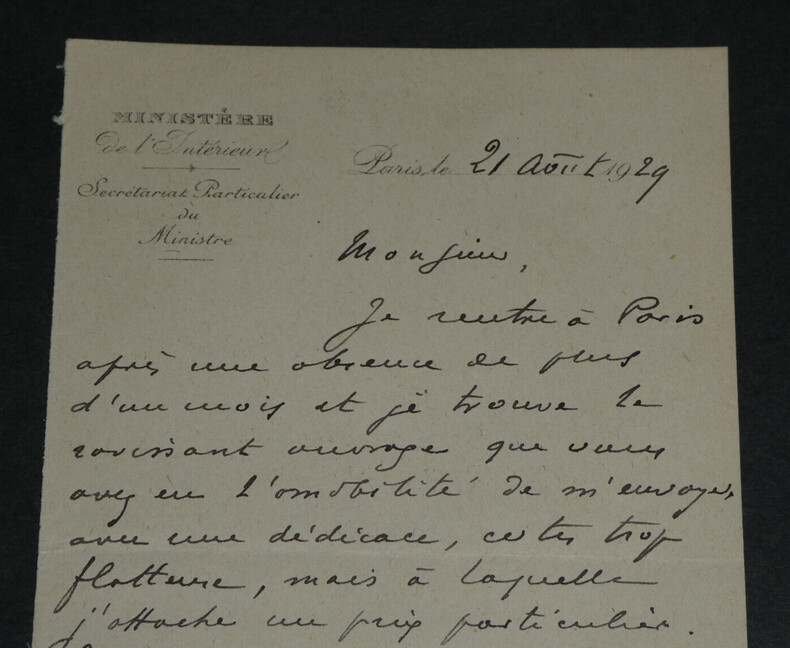 MINISTÈRE
de l'Intérieur
Secrétariat Particulier
du
Ministre
Paris, le 21 Août 1929
Monsieur,
Je rentre à Paris
après une absence de plus
d'un mois et je trouve le
ravissant ouvrage que vous
avez eu l'amabilité de m'envoyer,
avec une dédicace, certes trop
flatteuse, mais à laquelle
j'attache un prix particulier.